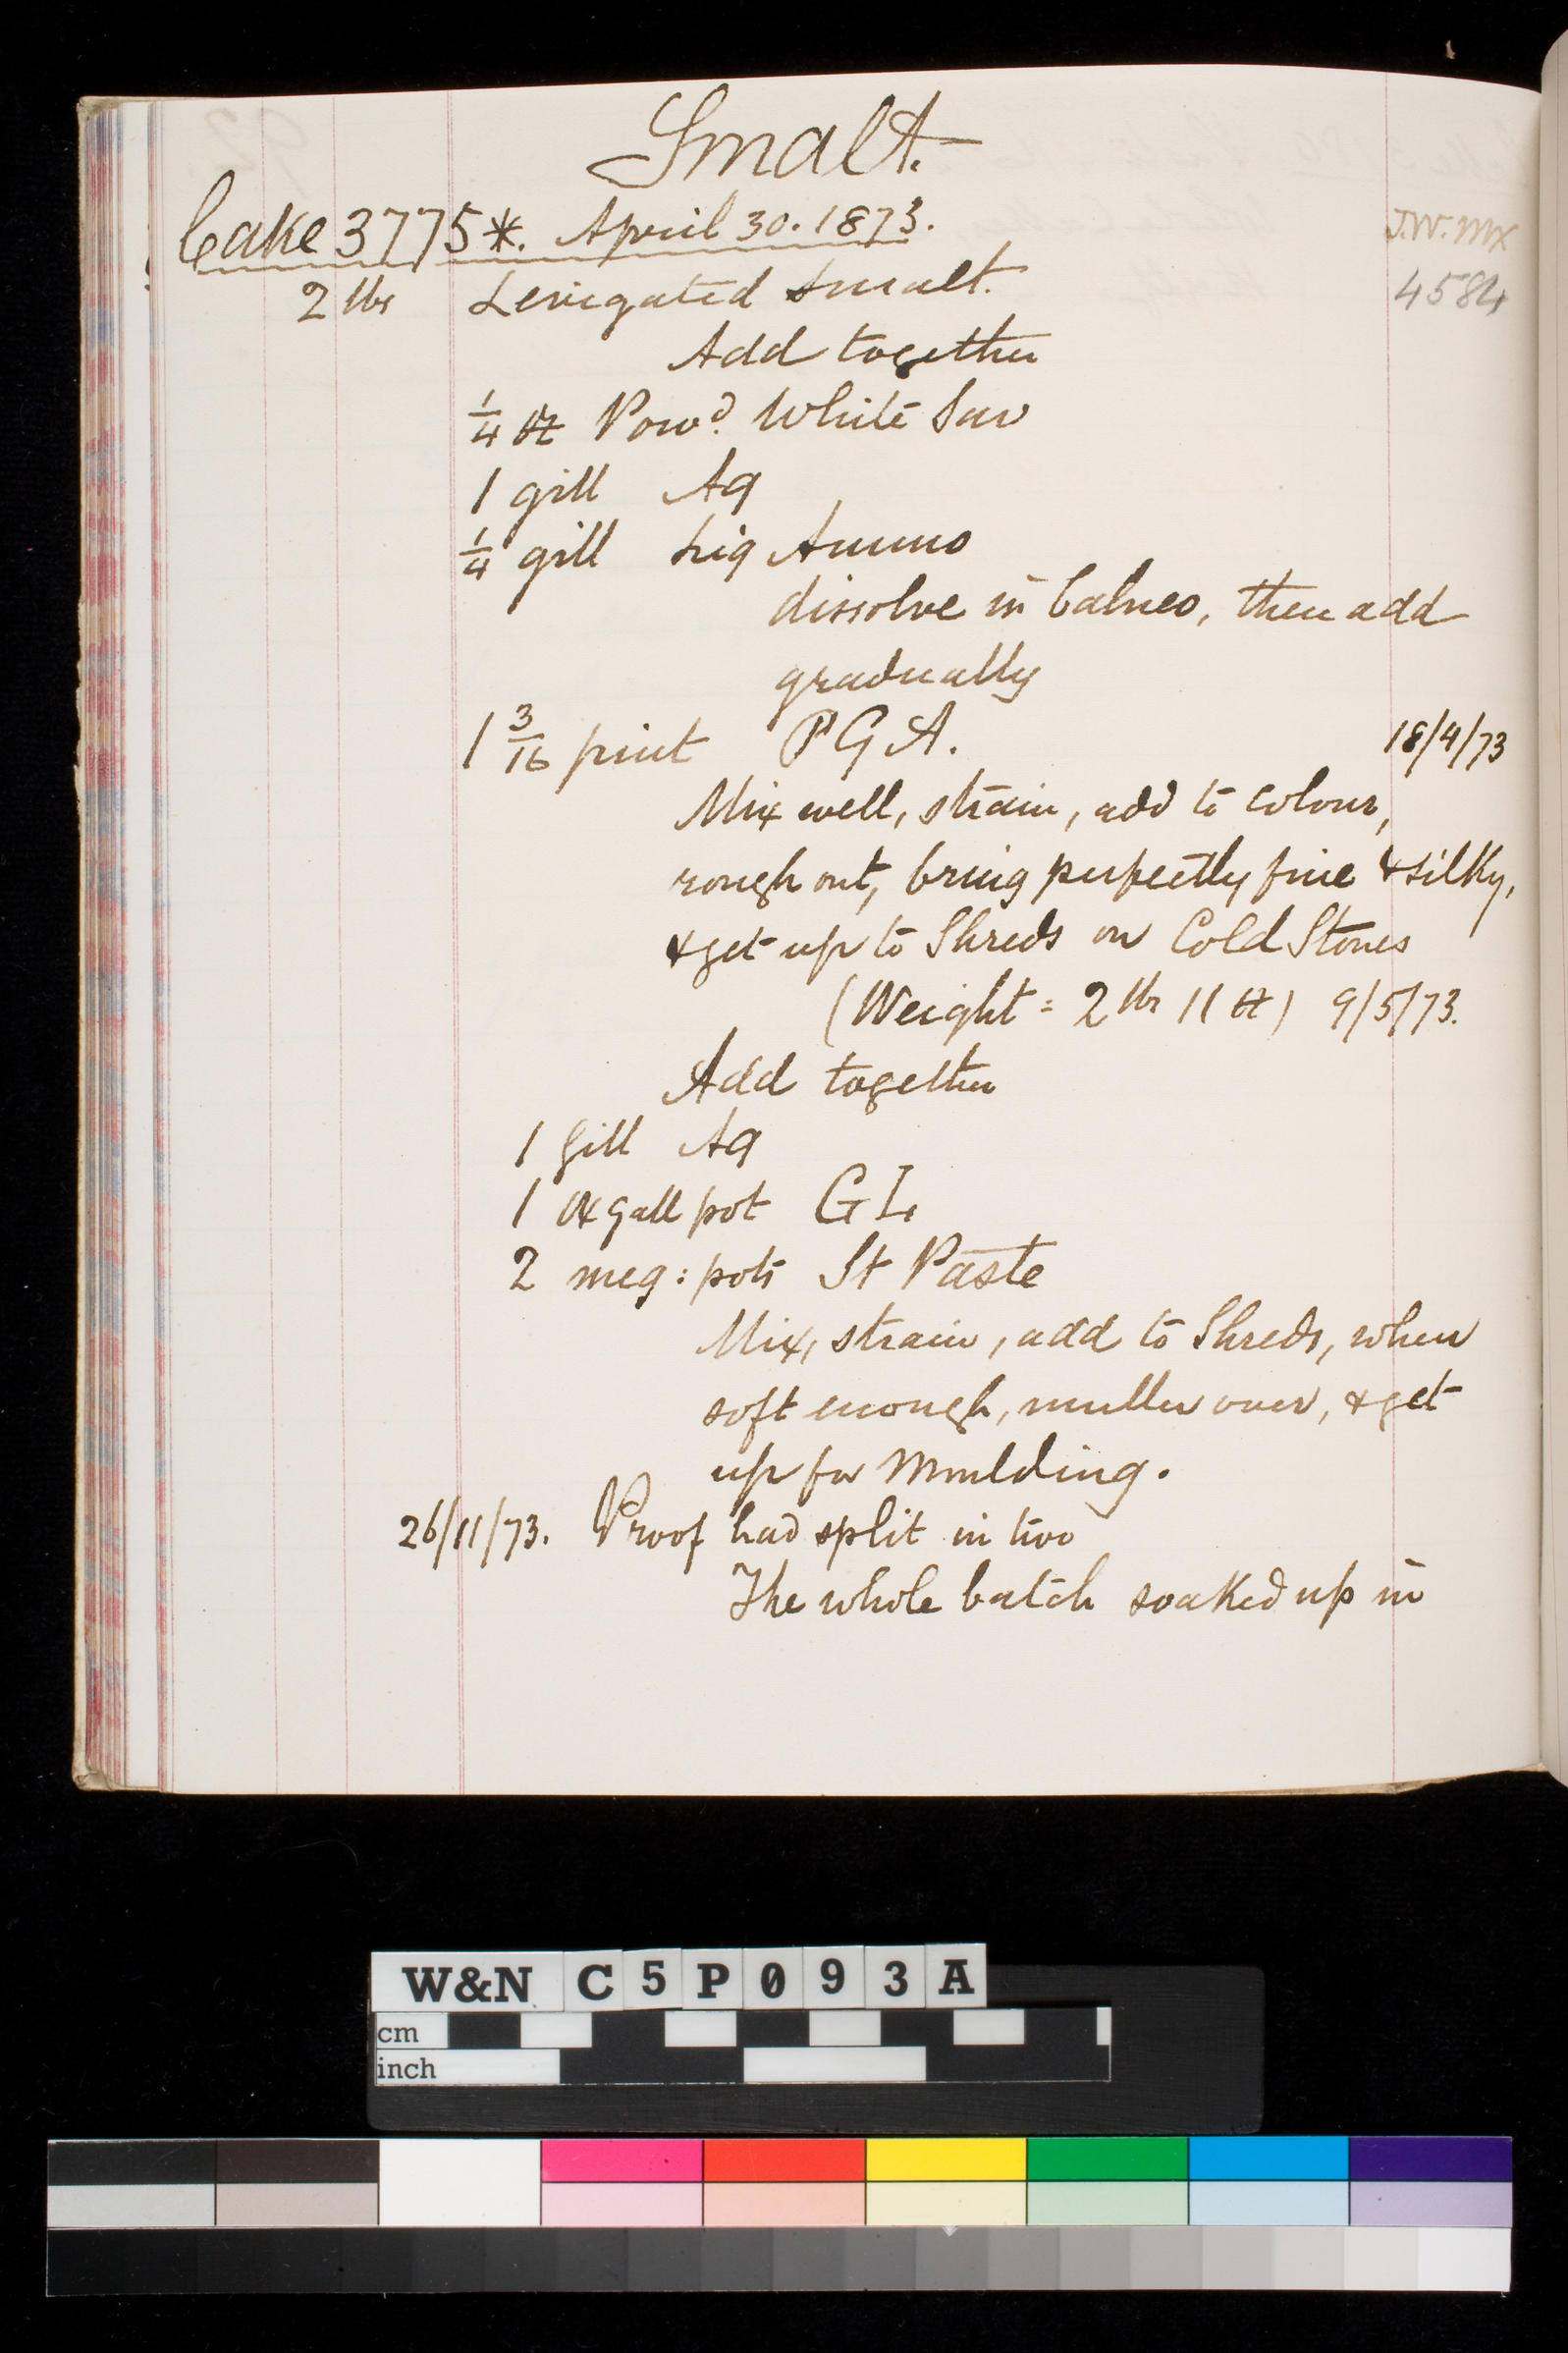 Smalt.
Cake 3775*. April 30. 1873.
J.W. Mx
4584
2 lbs Levigated Smalt.
Add together
1/4 oz Powd. White Lac
1 gill Aq
1/4 gill Liq Ammo
dissolve in balneo, then add
gradually
1 3/16 pint PGA. 18/4/73
Mix well, strain, add to colour,
rough out, bring perfectly fine & silky,
& get up to Shreds on Cold Stones
(Weight = 2 lbs 11 oz) 9/5/73.
Add together
1 Gill Aq
1 Ox gall pot GL
2 meg: pots St Paste
Mix, strain, add to Shreds, when
soft enough, muller over, & get
up for Moulding.
26/11/73. Proof had split in two
The whole batch soaked up in
W&N C5P093A
cm
inch